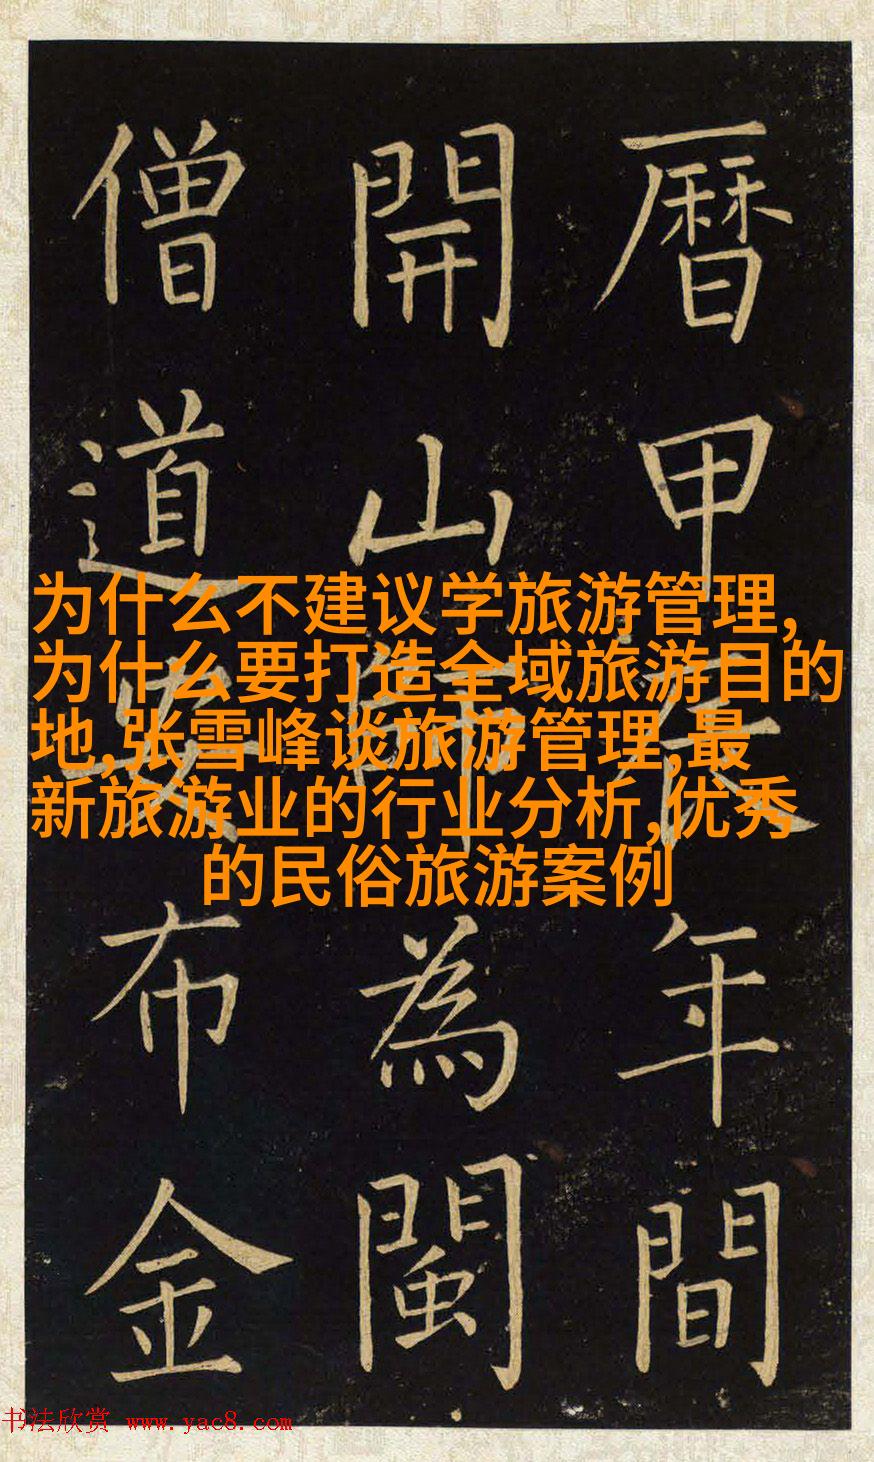 曆甲辰年間
開山師為閩
僧道要布金
为什么不建议学旅游管理,
为什么要打造全域旅游目的
地,张雪峰谈旅游管理,最
新旅游业的行业分析,优秀
的民俗旅游案例
书法欣赏 www.yac8.com